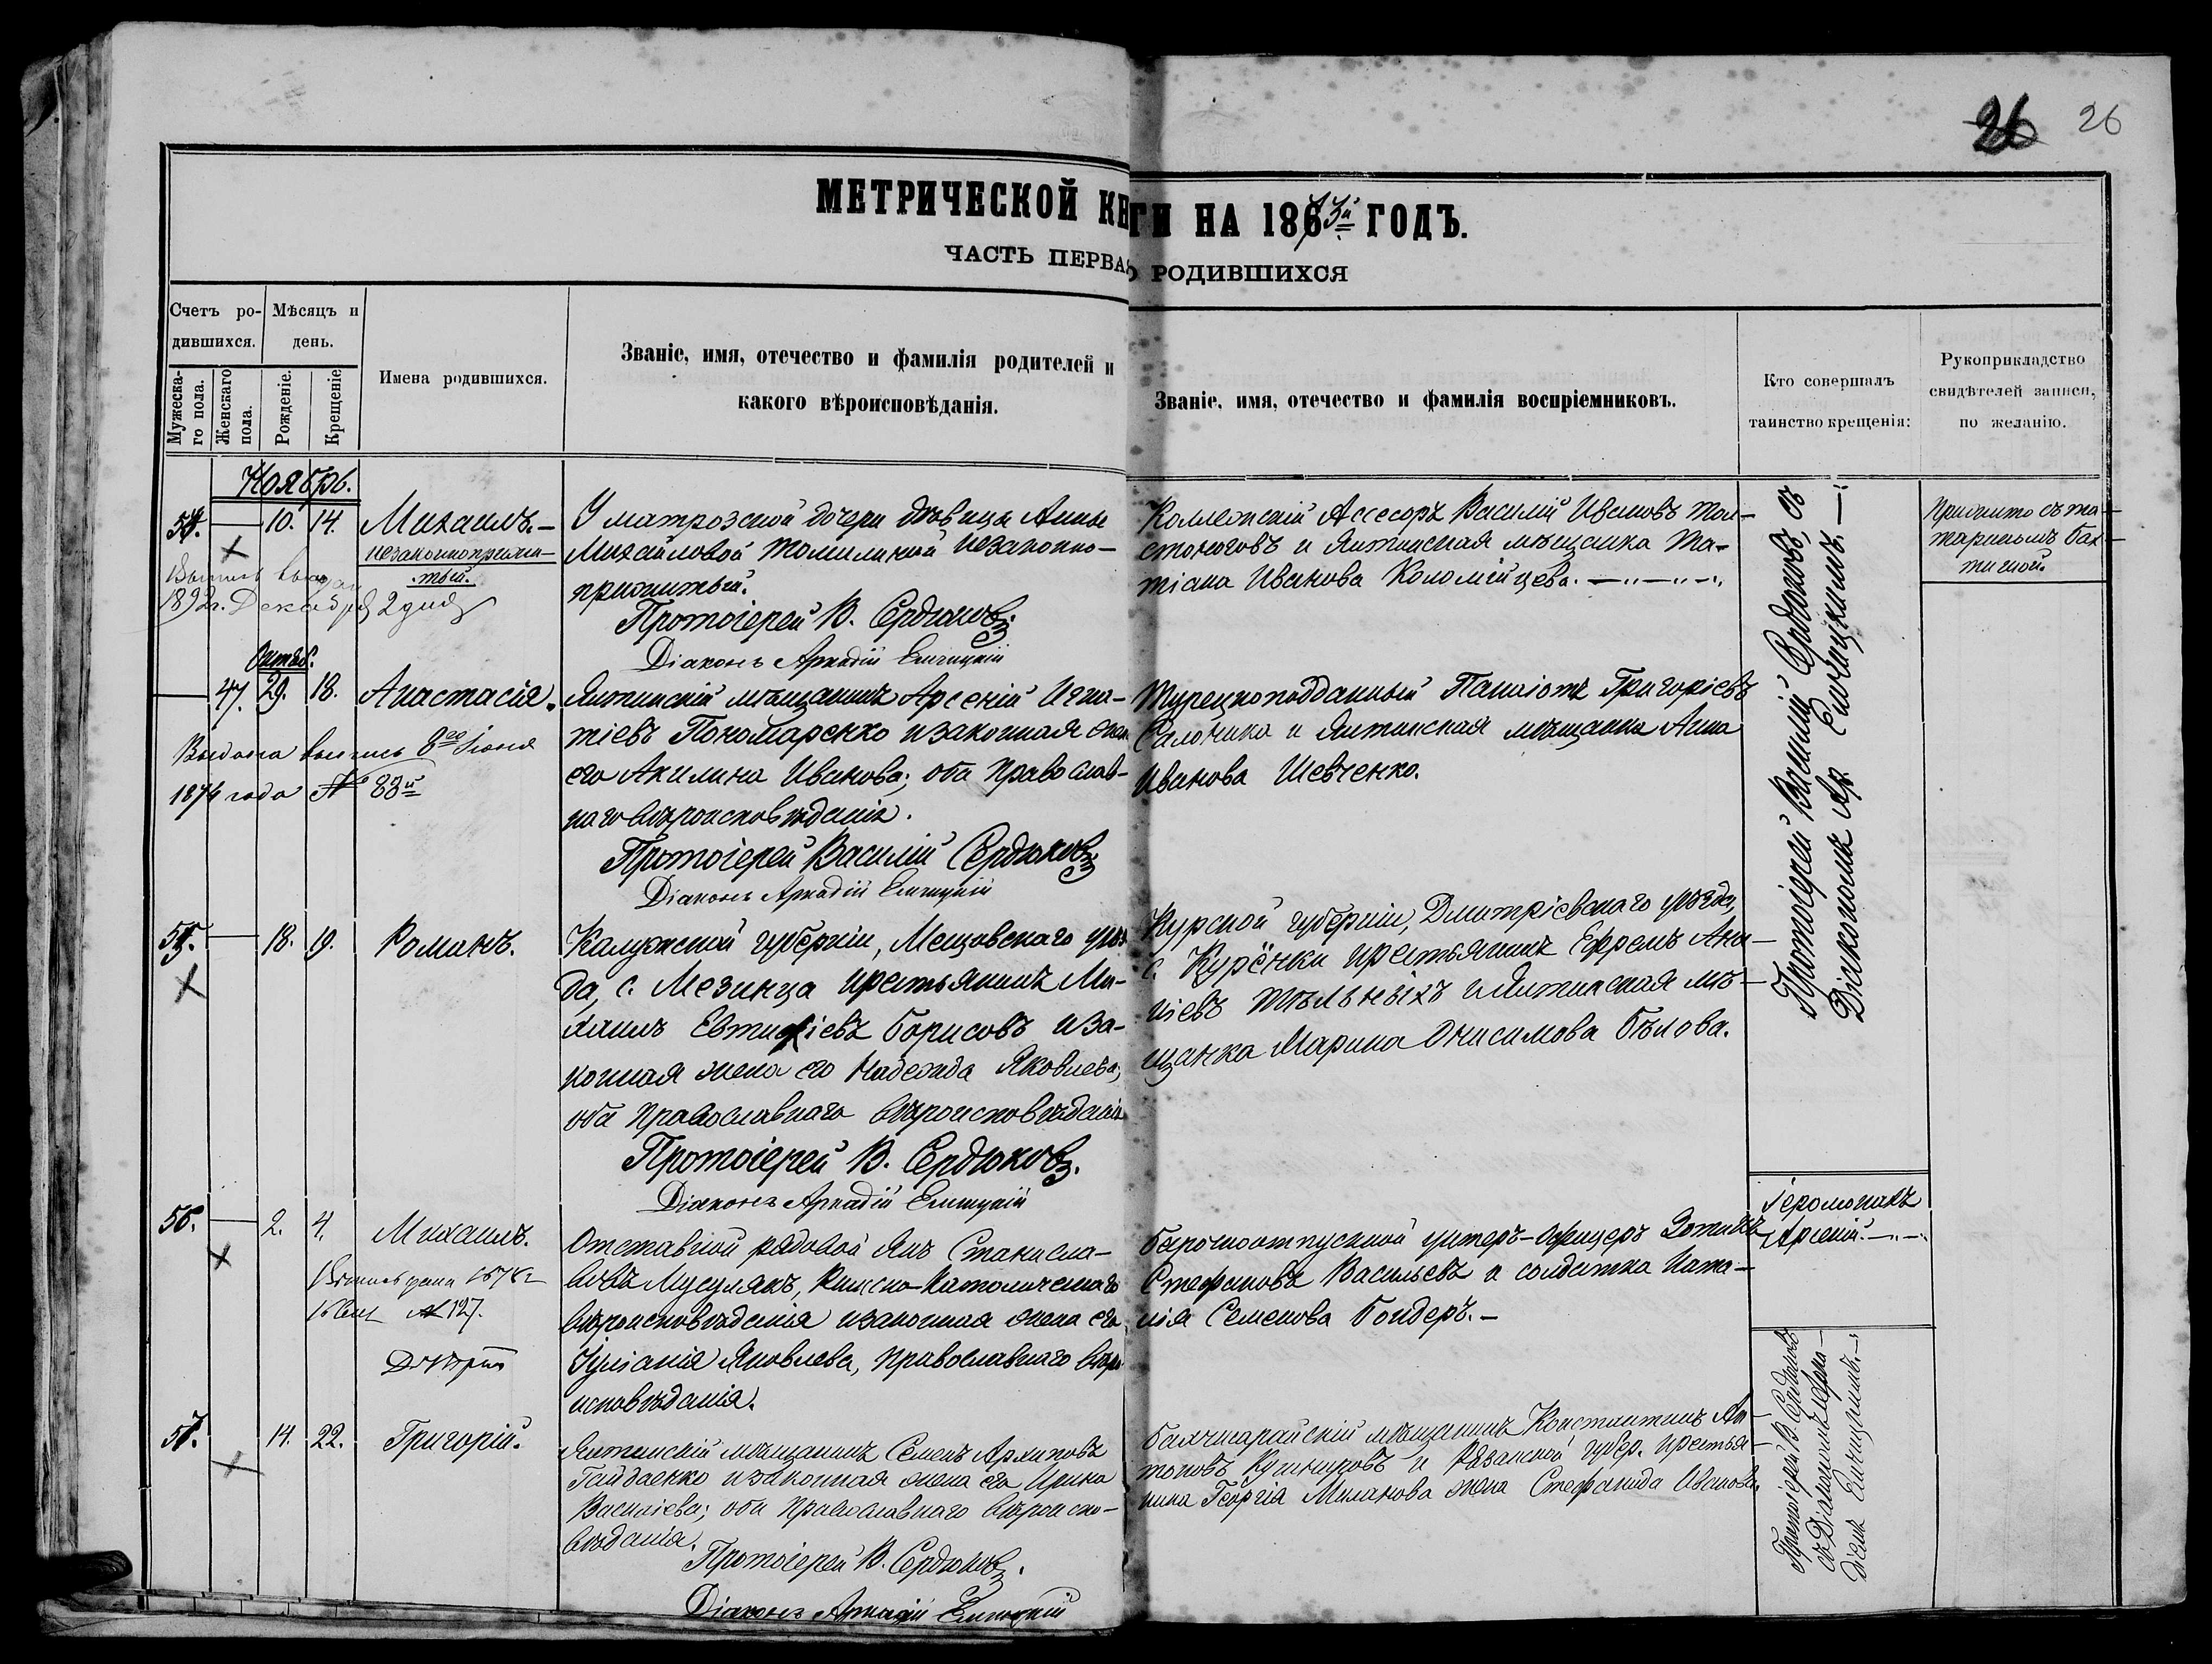 26 26
МЕТРИЧЕСКОЙ КНИГИ НА 1873й ГОДЪ.
ЧАСТЬ ПЕРВАЯ О РОДИВШИХСЯ
Счетъ ро-
дившихся.
Мужеска-
го пола.
Женскаго
пола.
Мѣсяцъ и
день.
Рожденіе.
Крещеніе
Имена родившихся.
Званіе, имя, отечество и фамилія родителей и
какого вѣроисповѣданія.
Званіе, имя, отечество и фамилія воспріемниковъ.
Кто совершалъ
таинство крещенія:
Рукоприкладство
свидѣтелей записи,
по желанію.
Ноябрь.
54. — 10. 14. Михаилъ. —
незаконноприжи-
тый.
Выпись выдан
1892 г. Декабря 2 дня
У матрозской дочери дѣвицы Анны
Михайловой Томилиной незаконно-
прижитый.
Протоіерей В. Сердюковъ
Діаконъ Аркадій Епичицкій
Коллежскій Ассесоръ Василій Ивановъ Тол-
стоноговъ и Ялтинская мѣщанка Та-
тіана Иванова Коломійцева.
Протоіерей Василій Сердюковъ, съ
Діакономъ Ар. Епичицкимъ. —
Октяб.
— 47. 29. 18. Анастасія.
Выдана выпись 8го Іюня
1874 года № 83й
Ялтинскій мѣщанинъ Арсеній Игна-
тіевъ Пономаренко и законная жена
его Акилина Иванова; оба православ-
наго вѣроисповѣданія.
Протоіерей Василій Сердюковъ
Діаконъ Аркадій Епичицкій
Турецкоподданный Панаіотъ Григоріевъ
Салоника и Ялтинская мѣщанка Анна
Иванова Шевченко.
55. — 18. 19. Романъ.
Калужской губерніи, Мещовскаго уѣз-
да, с. Мезинца крестьянинъ Ми-
хаилъ Евтихіевъ Борисовъ и за-
конная жена его Надежда Яковлева;
оба православнаго вѣроисповѣданія
Протоіерей В. Сердюковъ.
Діаконъ Аркадій Епичицкій
Курской губерніи, Дмитріевскаго уѣзда,
с. Курёнки крестьянинъ Ефремъ Ана-
ніевъ Тѣльныхъ и Ялтинская мѣ-
щанка Марина Онисимова Бѣлова.
56. — 2. 4. Михаилъ.
№ 127.
Отставной рядовой Янъ Станисла-
вовъ Мусулякъ, Римско-Католическаго
вѣроисповѣданія и законная жена его,
Іуліанія Яковлева, православнаго вѣро-
исповѣданія.
Безсрочноотпускной унтеръ-офицеръ Зотикъ
Стефановъ Васильевъ и солдатка Ната-
лія Семенова Бондеръ. —
Іеромонахъ
Арсеній.
57. 14. 22. Григорій.
Ялтинскій мѣщанинъ Семенъ Архиповъ
Гайдаенко и законная жена его Ирина
Василіева; оба православнаго вѣроиспо-
вѣданія.
Протоіерей В. Сердюковъ.
Діаконъ Аркадій Епичицкій
Бахчисарайскій мѣщанинъ Константинъ Ан-
тоновъ Кушнировъ и Рязанской губер. крестья-
нина Георгія Миланова жена Стефанида Иванова.
Протоіерей В. Сердюковъ
съ Діакономъ Арка-
діемъ Епичицкимъ. —